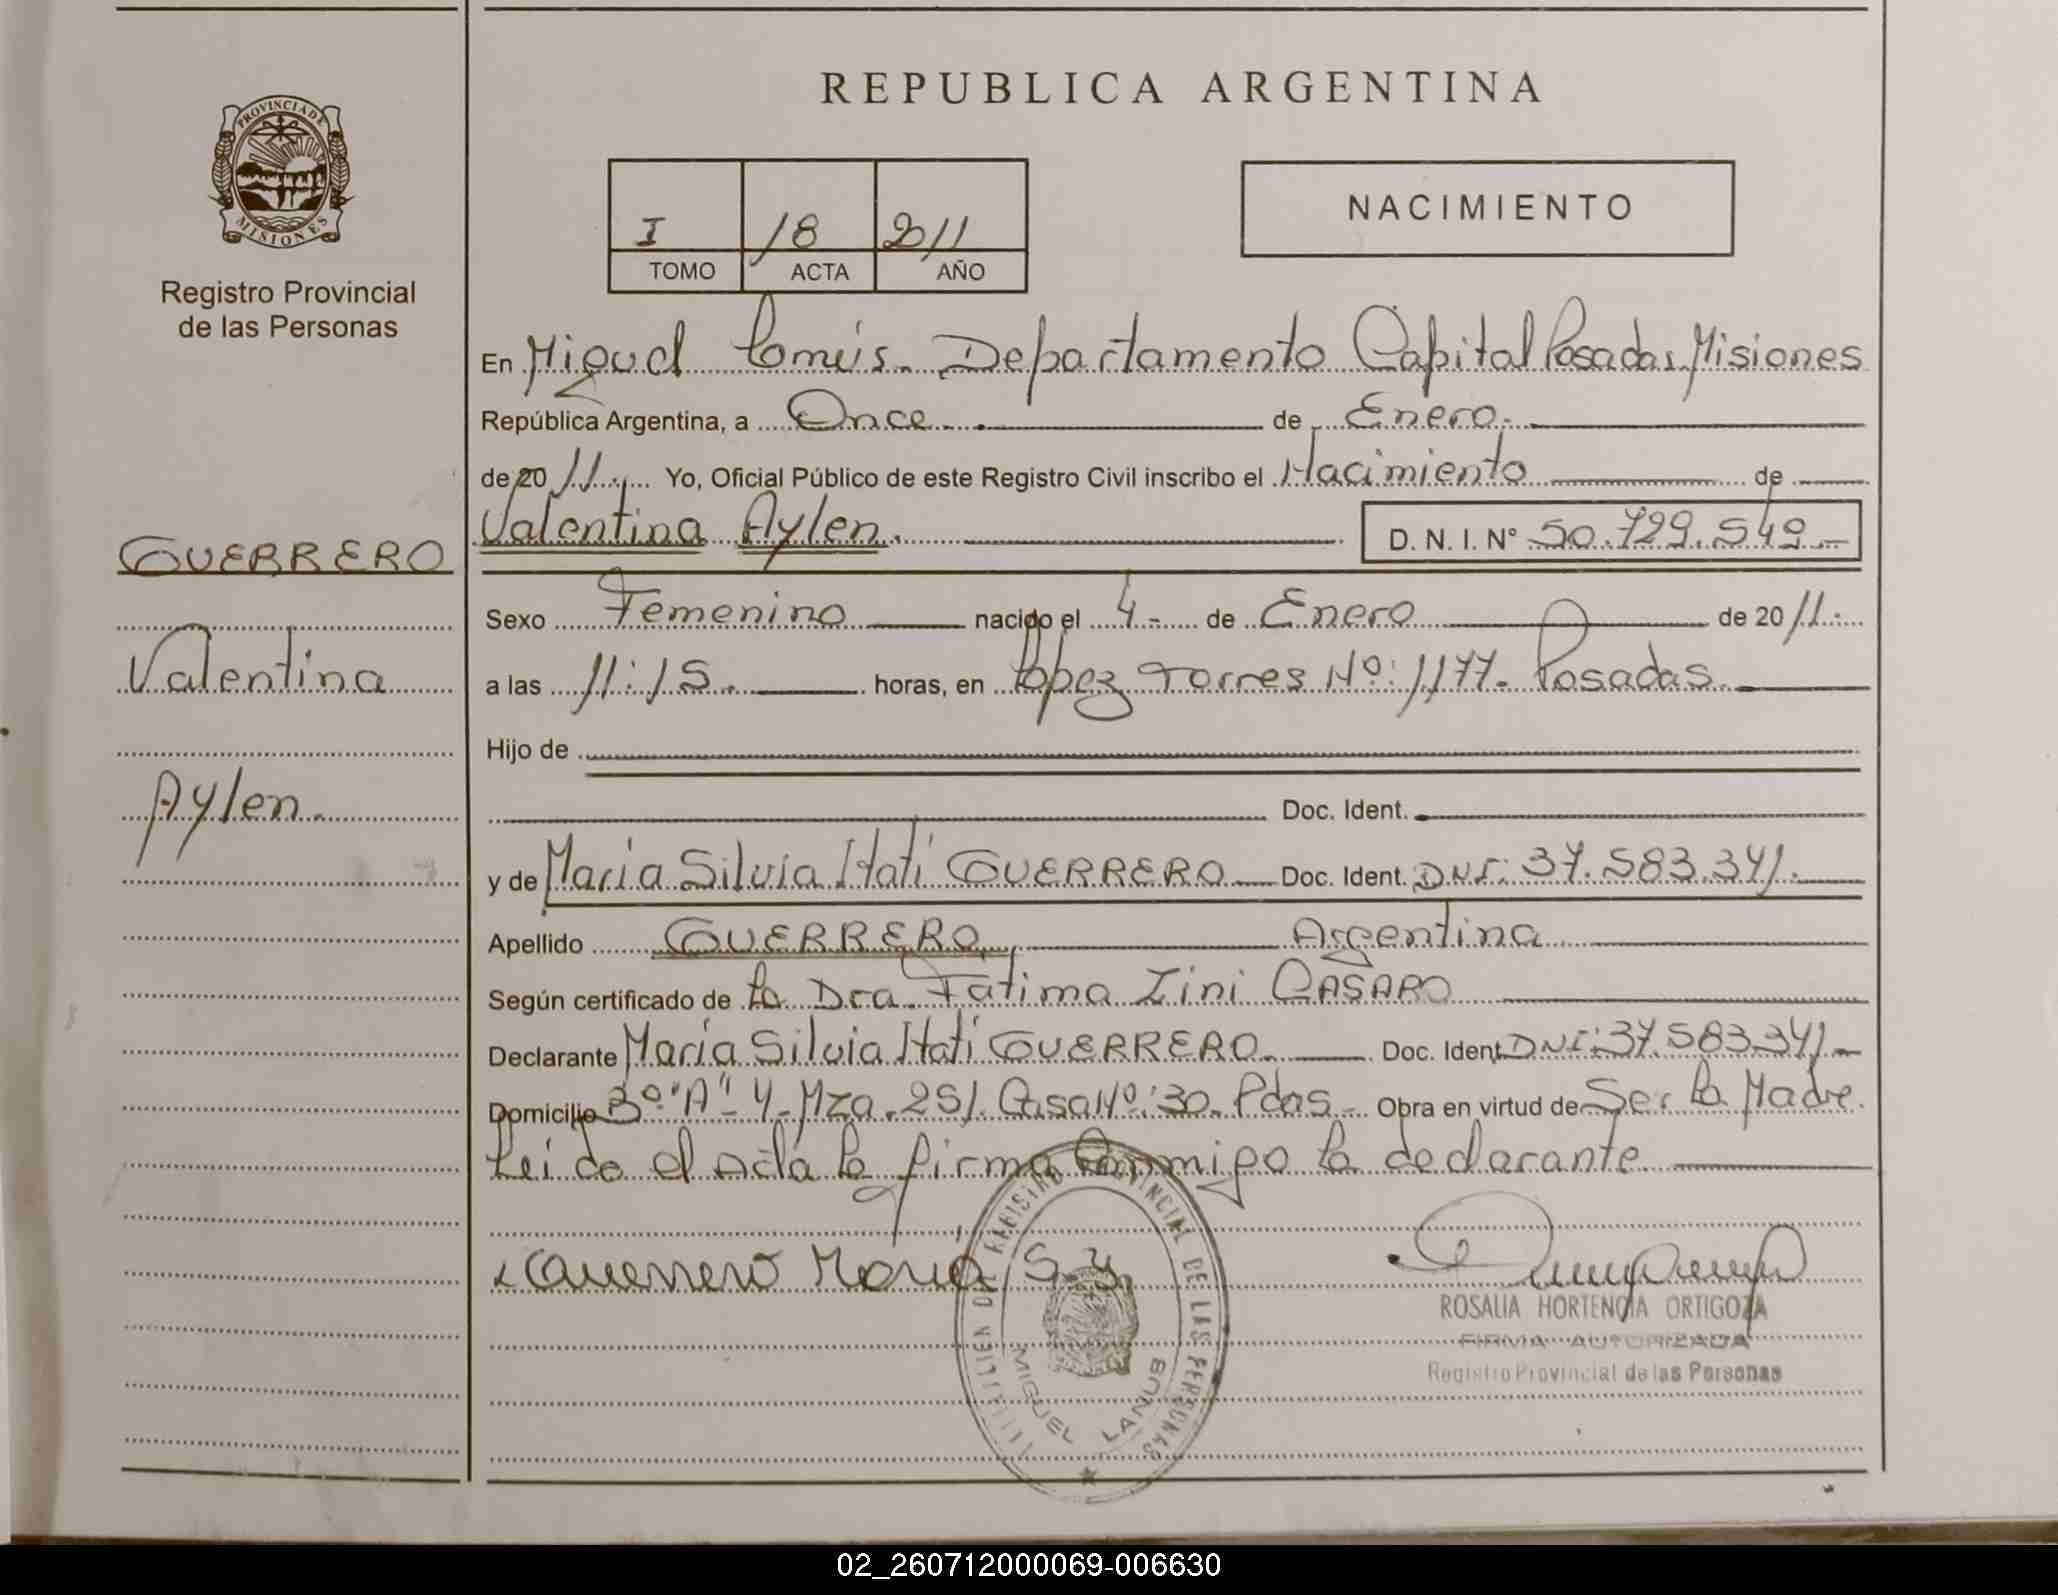 REPUBLICA ARGENTINA
PROVINCIA DE
MISIONES
Registro Provincial
de las Personas
I 18 2011
TOMO ACTA AÑO
NACIMIENTO
En Miguel Lanús. Departamento Capital Posadas Misiones
República Argentina, a Once. de Enero.
de 20 11. Yo, Oficial Público de este Registro Civil inscribo el Nacimiento de
Valentina Aylen. D. N. I. N° 50.729.549
GUERRERO
Valentina
Aylen.
Sexo Femenino nacido el 4 - de Enero de 20 11.
a las 11:15. horas, en López Torres Nº: 1177. Posadas.
Hijo de
Doc. Ident.
y de María Silvia Itatí GUERRERO Doc. Ident. DNI: 37.583.341.
Apellido GUERRERO Argentina
Según certificado de la Dra. Fatima Zini CASARO
Declarante María Silvia Itatí GUERRERO. Doc. Ident DNI: 37.583341
Domicilio 3º "A" - 4 - Mza. 251. Casa Nº: 30. Pdas - Obra en virtud de Ser la Madre.
Leído el Acta la firma Conmigo la declarante
Guerrero María S. Y.
REGISTRO PROVINCIAL DE LAS PERSONAS
MIGUEL LANUS
ROSALIA HORTENCIA ORTIGOZA
FIRMA AUTORIZADA
Registro Provincial de las Personas
02_260712000069-006630